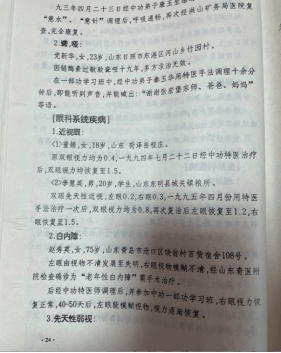 九三年四月二十三日经中功弟子康玉
"意水"、"意针"调理后,呼吸通畅,再次经洪山矿务局医院复
查,完全康复。
2.聋、哑:
光新华,女,23岁,山东日照市东港区河山乡竹园村。
因链霉素过敏致聋哑十九年,多方求治无效。
在一部功学习班中,经中功弟子秦玉华用特医手法调理十余分
钟后,即能听到声音,并能喊出:"谢谢张宏堡宗师、爸爸、妈妈"
等语。
[眼科系统疾病]
1.近视眼:
<1>董艳,女,18岁,山东
原双眼视力均为0.4,一九九四年七月二十二日经中功特医治疗
后,双眼视力均恢复至1.5。
<2>李意英,男,20岁,学生,山东东明县城关镇粮所。
双眼先天性近视,左眼0.2,右眼0.3,一九九五年四月份用特医
手法治疗一次后,双眼视力均为0.8,再次复治后左眼恢复至1.2,右
眼恢复至1.5。
2.白内障:
赵秀英,女,75岁,山东青岛市沧口区 百货宿舍108号。
左眼由视物不清发展至失明,右眼视物模糊不清,经山东黄医附
院检查确诊为"老年性白内障"需手术治疗。
后经中功特医师调理后,并参加中功一部功学习班,右眼视力恢
复正常,40-50天后,左眼能模糊视物,视力逐渐恢复。
3.先天性弱视:
· 24 ·